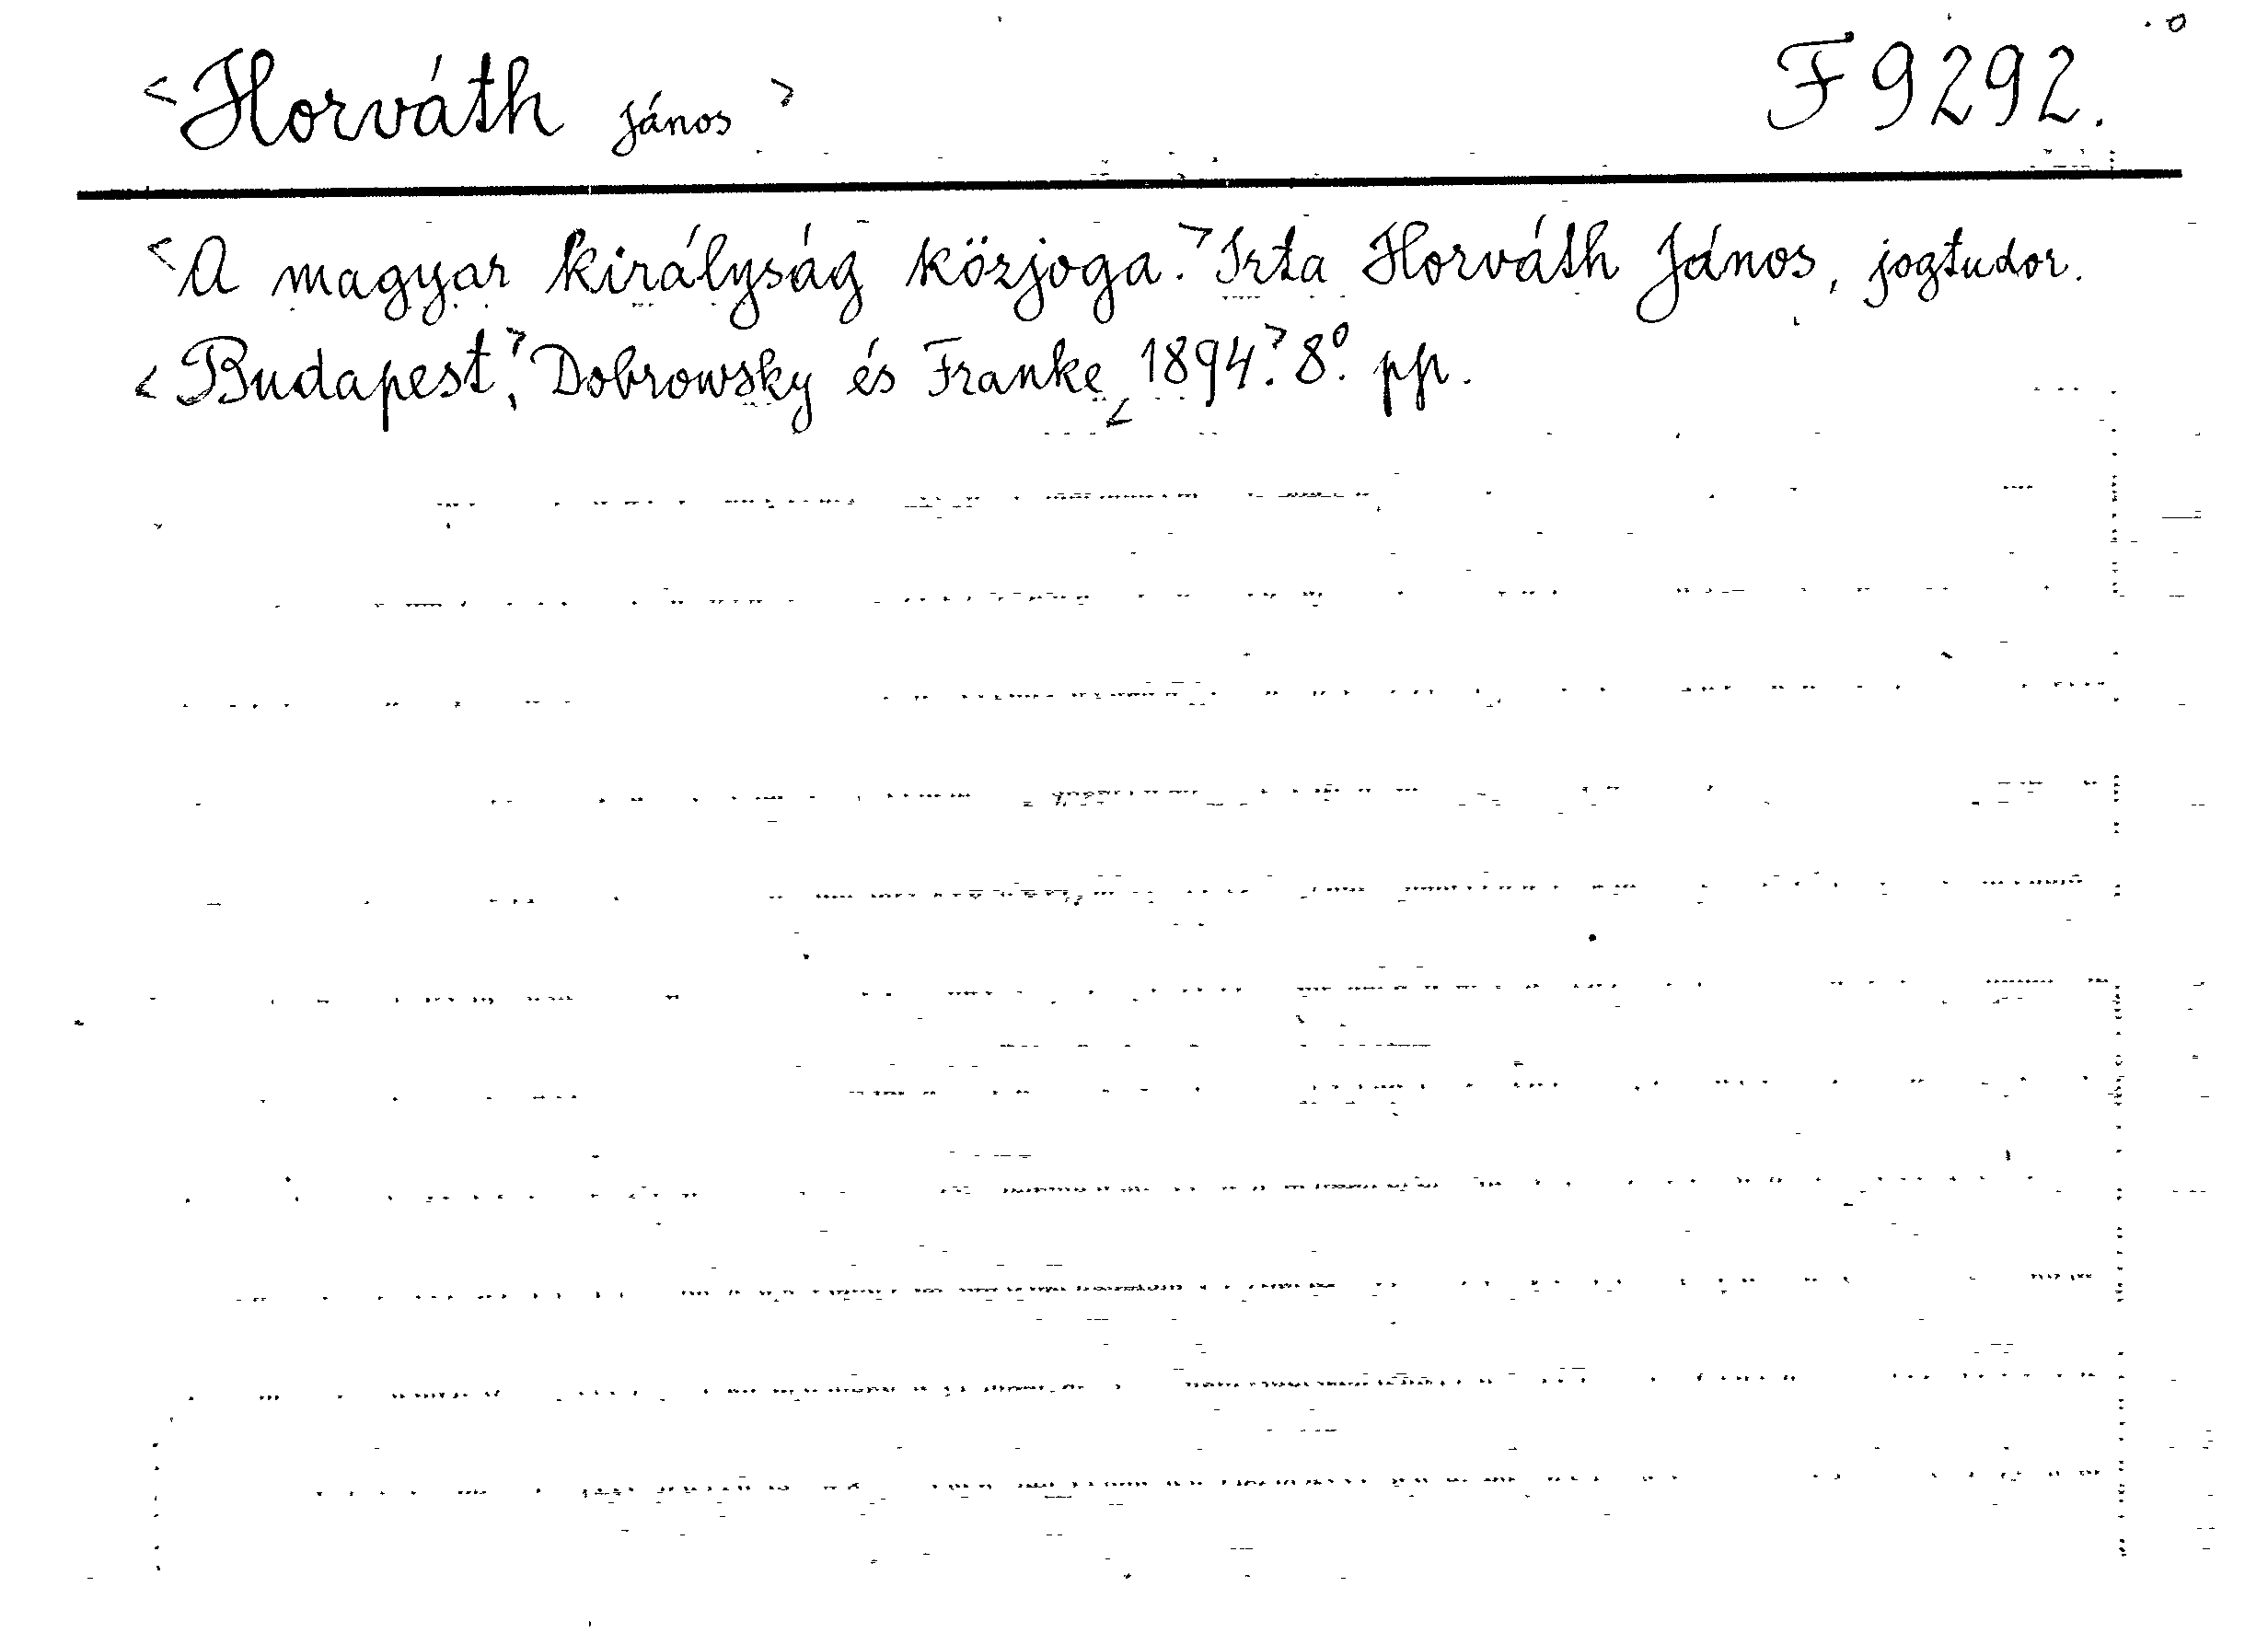 <Horváth János> F 9292.
<A magyar királyság közjoga.> Irta Horváth János, jogtudor.
<Budapest,> Dobrowsky és Franke <1894.> 8º. pp.